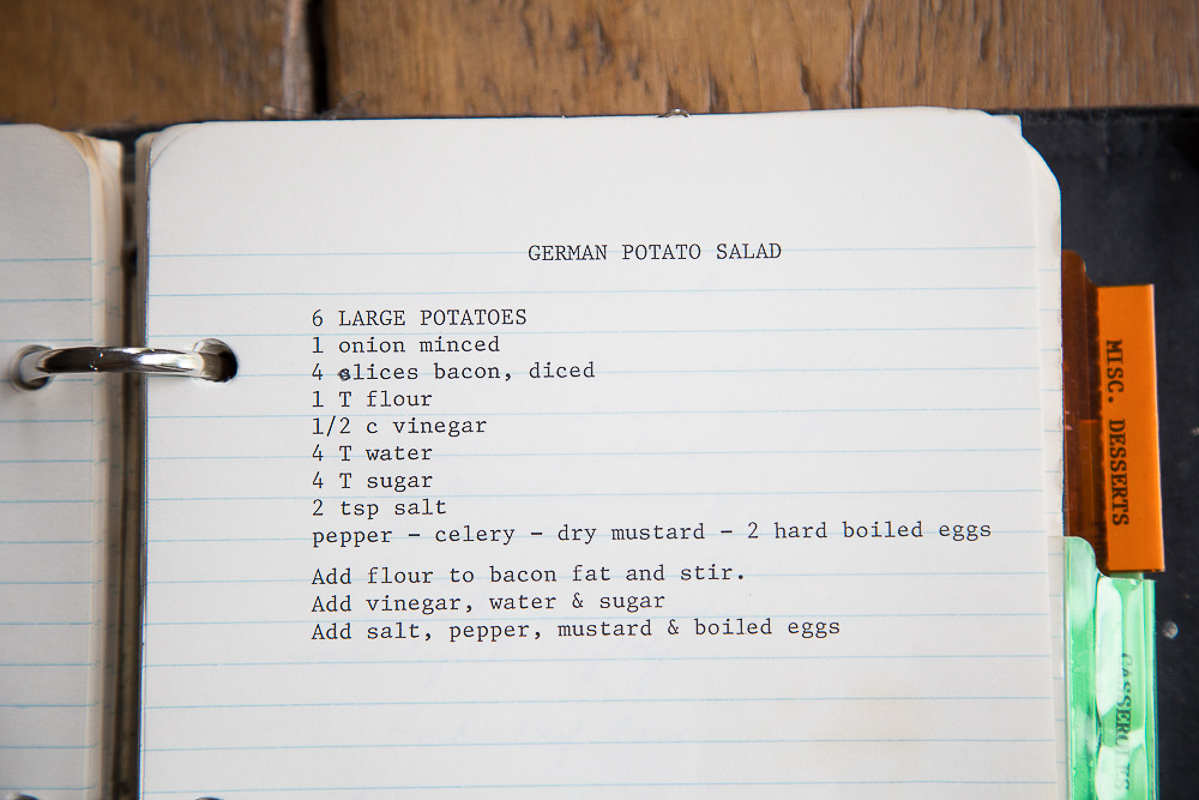 GERMAN POTATO SALAD
6 LARGE POTATOES
1 onion minced
4 slices bacon, diced
1 T flour
1/2 c vinegar
4 T water
4 T sugar
2 tsp salt
pepper - celery - dry mustard - 2 hard boiled eggs
Add flour to bacon fat and stir.
Add vinegar, water & sugar
Add salt, pepper, mustard & boiled eggs
MISC. DESSERTS
CASSEROLES